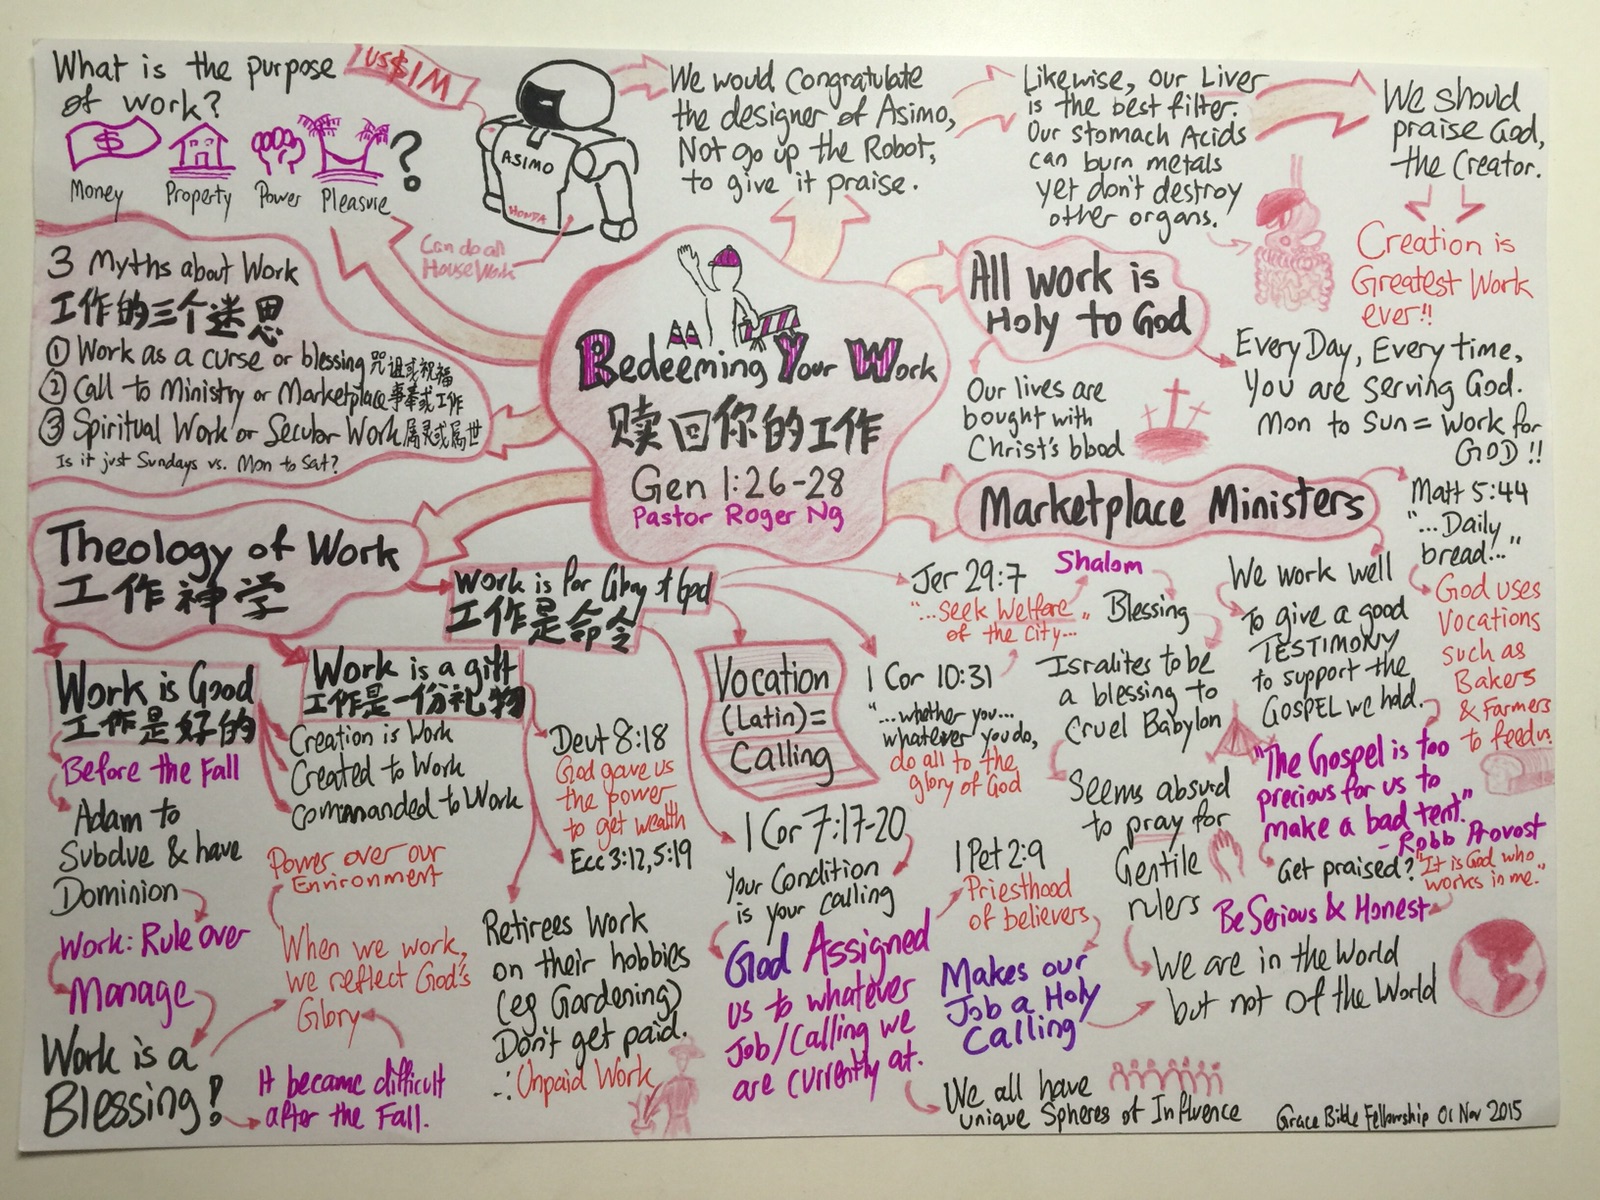 What is the purpose
of work?
$
Money
Property
Power
Pleasure
?
US$1M
ASIMO
HONDA
Can do all
House Work
We would Congratulate
the designer of Asimo,
Not go up the Robot,
to give it praise.
Likewise, our Liver
is the best filter.
Our stomach Acids
can burn metals
yet don't destroy
other organs.
We should
praise God,
the Creator.
Creation is
Greatest Work
ever!!
3 Myths about Work
工作的三个迷思
① Work as a curse or blessing 咒诅或祝福
② Call to Ministry or Marketplace 事奉或工作
③ Spiritual Work or Secular Work 属灵或属世
Is it just Sundays vs. Mon to Sat?
Redeeming Your Work
赎回你的工作
Gen 1:26-28
Pastor Roger Ng
All work is
Holy to God
Our lives are
bought with
Christ's blood
Every Day, Every time,
You are serving God.
Mon to Sun = Work for
GOD!!
Theology of Work
工作神学
Work is Good
工作是好的
Before the Fall
Adam to
Subdue & have
Dominion
Work: Rule over
Manage
Work is a
Blessing!
It became difficult
after the Fall.
When we work,
we reflect God's
Glory
Power over our
Environment
Work is a gift
工作是一份礼物
Creation is Work
Created to Work
commanded to Work
Deut 8:18
God gave us
the power
to get wealth
Ecc 3:12, 5:19
Retirees Work
on their hobbies
(eg Gardening)
Don't get paid.
∴ Unpaid Work
Work is for Glory of God
工作是命令
Vocation
(Latin) =
Calling
Jer 29:7
"...Seek Welfare
of the city..."
Shalom
Blessing
Isralites to be
a blessing to
Cruel Babylon
Seems absurd
to pray for
Gentile
rulers
We are in the World
but not of the World
1 Cor 10:31
"...whether you...
whatever you do,
do all to the
glory of God
1 Cor 7:17-20
Your Condition
is your calling
God Assigned
us to whatever
Job/Calling we
are currently at.
1 Pet 2:9
Priesthood
of believers
Makes our
Job a Holy
Calling
We all have
unique Spheres of Influence
Marketplace Ministers
Matt 5:44
"...Daily
bread..."
God uses
Vocations
such as
Bakers
& Farmers
to feed us
We work well
To give a good
TESTIMONY
to support the
GOSPEL we hold.
"The Gospel is too
precious for us to
make a bad tent."
- Robb Provost
Get praised? "It is God who
works in me."
Be Serious & Honest
Grace Bible Fellowship 01 Nov 2015